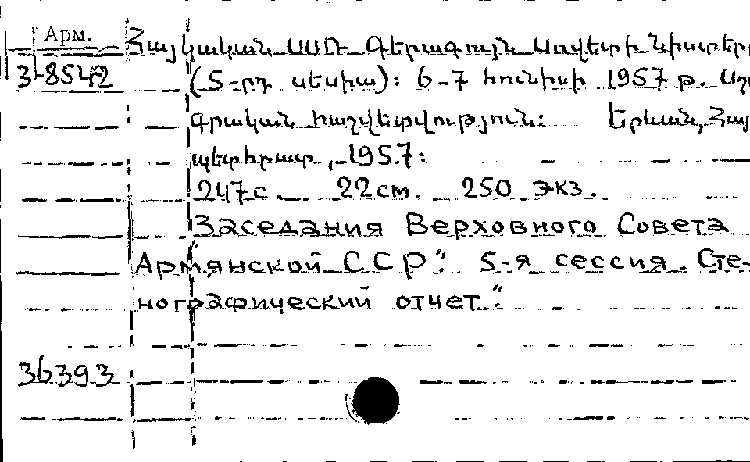 Арм.
Հայկական ՍՍՌ Գերագույն Սովետի նիստերը
3-8542 (5-րդ սեսիա): 6-7 հունիսի 1957 թ.
գրական հաշվետվություն: Երևան, Հայ
պետհրատ, 1957:
247 с. 22 см. 250 экз.
"Заседания Верховного Совета
Армянской ССР". 5-я сессия. Сте-
нографический отчет."
36393